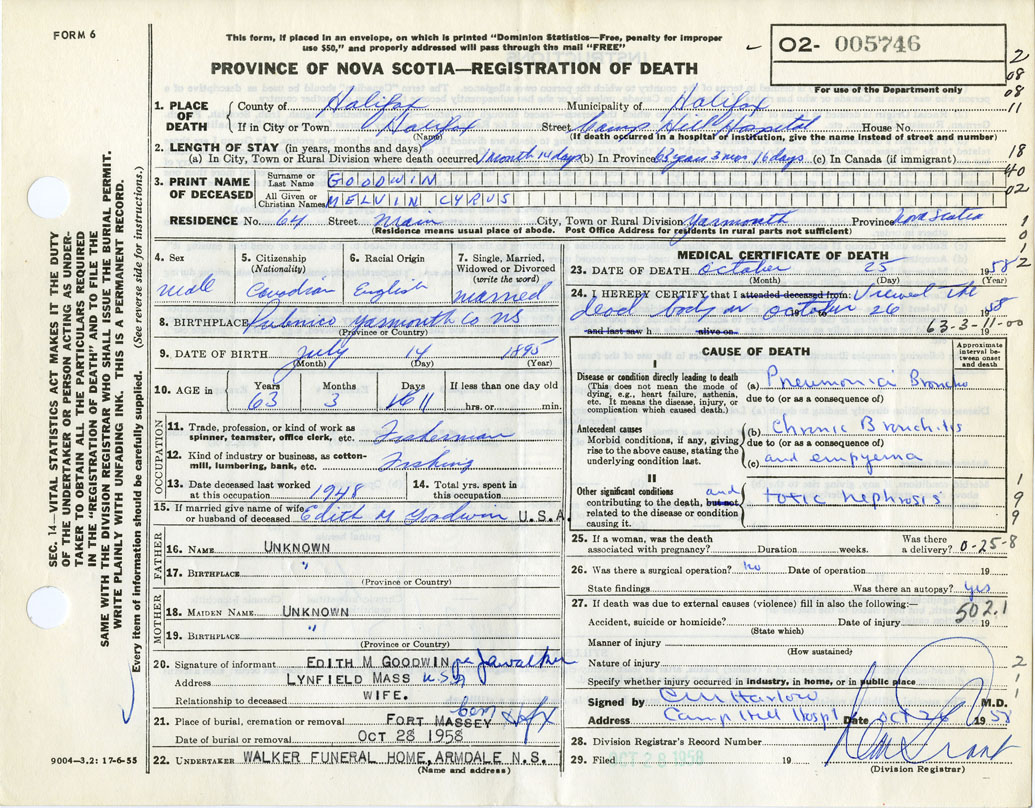 FORM 6
This form, if placed in an envelope, on which is printed "Dominion Statistics—Free, penalty for improper
use $50," and properly addressed will pass through the mail "FREE"
PROVINCE OF NOVA SCOTIA—REGISTRATION OF DEATH
02- 005746
For use of the Department only
2
08
08
11
18
40
02
1. PLACE OF DEATH
County of Halifax Municipality of Halifax
If in City or Town Halifax Street Camp Hill Hospital House No.
(Name) (If death occurred in a hospital or institution, give the name instead of street and number)
2. LENGTH OF STAY (in years, months and days)
(a) In City, Town or Rural Division where death occurred 1 month 14 days (b) In Province 63 years 3 mos 16 days (c) In Canada (if immigrant)
3. PRINT NAME OF DECEASED
Surname or Last Name GOODWIN
All Given or Christian Names MELVIN CYRUS
RESIDENCE No. 64 Street Main City, Town or Rural Division Yarmouth Province Nova Scotia
(Residence means usual place of abode. Post Office Address for residents in rural parts not sufficient)
4. Sex
Male
5. Citizenship
(Nationality)
Canadian
6. Racial Origin
English
7. Single, Married,
Widowed or Divorced
(write the word)
Married
8. BIRTHPLACE Pubnico Yarmouth Co NS
(Province or Country)
9. DATE OF BIRTH July 14 1895
(Month) (Day) (Year)
10. AGE in
Years Months Days If less than one day old
63 3 11 hrs. or min.
OCCUPATION
11. Trade, profession or kind of work as
spinner, teamster, office clerk, etc. Fisherman
12. Kind of industry or business, as cotton-
mill, lumbering, bank, etc. Fishing
13. Date deceased last worked
at this occupation 1948
14. Total yrs. spent in
this occupation
15. If married give name of wife
or husband of deceased Edith M Goodwin U.S.A
FATHER
16. NAME UNKNOWN
17. BIRTHPLACE "
(Province or Country)
MOTHER
18. MAIDEN NAME UNKNOWN
19. BIRTHPLACE "
(Province or Country)
20. Signature of informant EDITH M GOODWIN per JAWalker
Address LYNFIELD MASS USA
Relationship to deceased WIFE.
21. Place of burial, cremation or removal FORT MASSEY Hfx
Date of burial or removal OCT 28 1958
22. UNDERTAKER WALKER FUNERAL HOME, ARMDALE N.S.
(Name and address)
MEDICAL CERTIFICATE OF DEATH
23. DATE OF DEATH October 25 1958
(Month) (Day) (Year)
24. I HEREBY CERTIFY that I attended deceased from: Viewed the
dead body on October 26 1958
and last saw h alive on
63-3-11-00
CAUSE OF DEATH
Approximate
interval be-
tween onset
and death
I
Disease or condition directly leading to death
(This does not mean the mode of
dying, e.g., heart failure, asthenia,
etc. It means the disease, injury, or
complication which caused death.)
(a) Pneumonia Broncho
due to (or as a consequence of)
Antecedent causes
Morbid conditions, if any, giving
rise to the above cause, stating the
underlying condition last.
(b) Chronic Bronchitis
due to (or as a consequence of)
(c) and empyema
II
Other significant conditions and
contributing to the death, but not
related to the disease or condition
causing it.
toxic nephrosis
1
9
9
25. If a woman, was the death
associated with pregnancy? Duration weeks.
Was there
a delivery? 0-25-8
26. Was there a surgical operation? no Date of operation 19
State findings Was there an autopsy? yes
27. If death was due to external causes (violence) fill in also the following:—
502.1
Accident, suicide or homicide? Date of injury 19
(State which)
Manner of injury
(How sustained)
Nature of injury
Specify whether injury occurred in industry, in home, or in public place
Signed by CM Harlow M.D.
Address Camp Hill Hospl Date Oct 26 1958
28. Division Registrar's Record Number
29. Filed OCT 28 1958 19
(Division Registrar)
SEC. 14—VITAL STATISTICS ACT MAKES IT THE DUTY
OF THE UNDERTAKER OR PERSON ACTING AS UNDER-
TAKER TO OBTAIN ALL THE PARTICULARS REQUIRED
IN THE "REGISTRATION OF DEATH" AND TO FILE THE
SAME WITH THE DIVISION REGISTRAR WHO SHALL ISSUE THE BURIAL PERMIT.
WRITE PLAINLY WITH UNFADING INK. THIS IS A PERMANENT RECORD.
Every item of information should be carefully supplied. (See reverse side for instructions.)
9004—3.2: 17-6-55